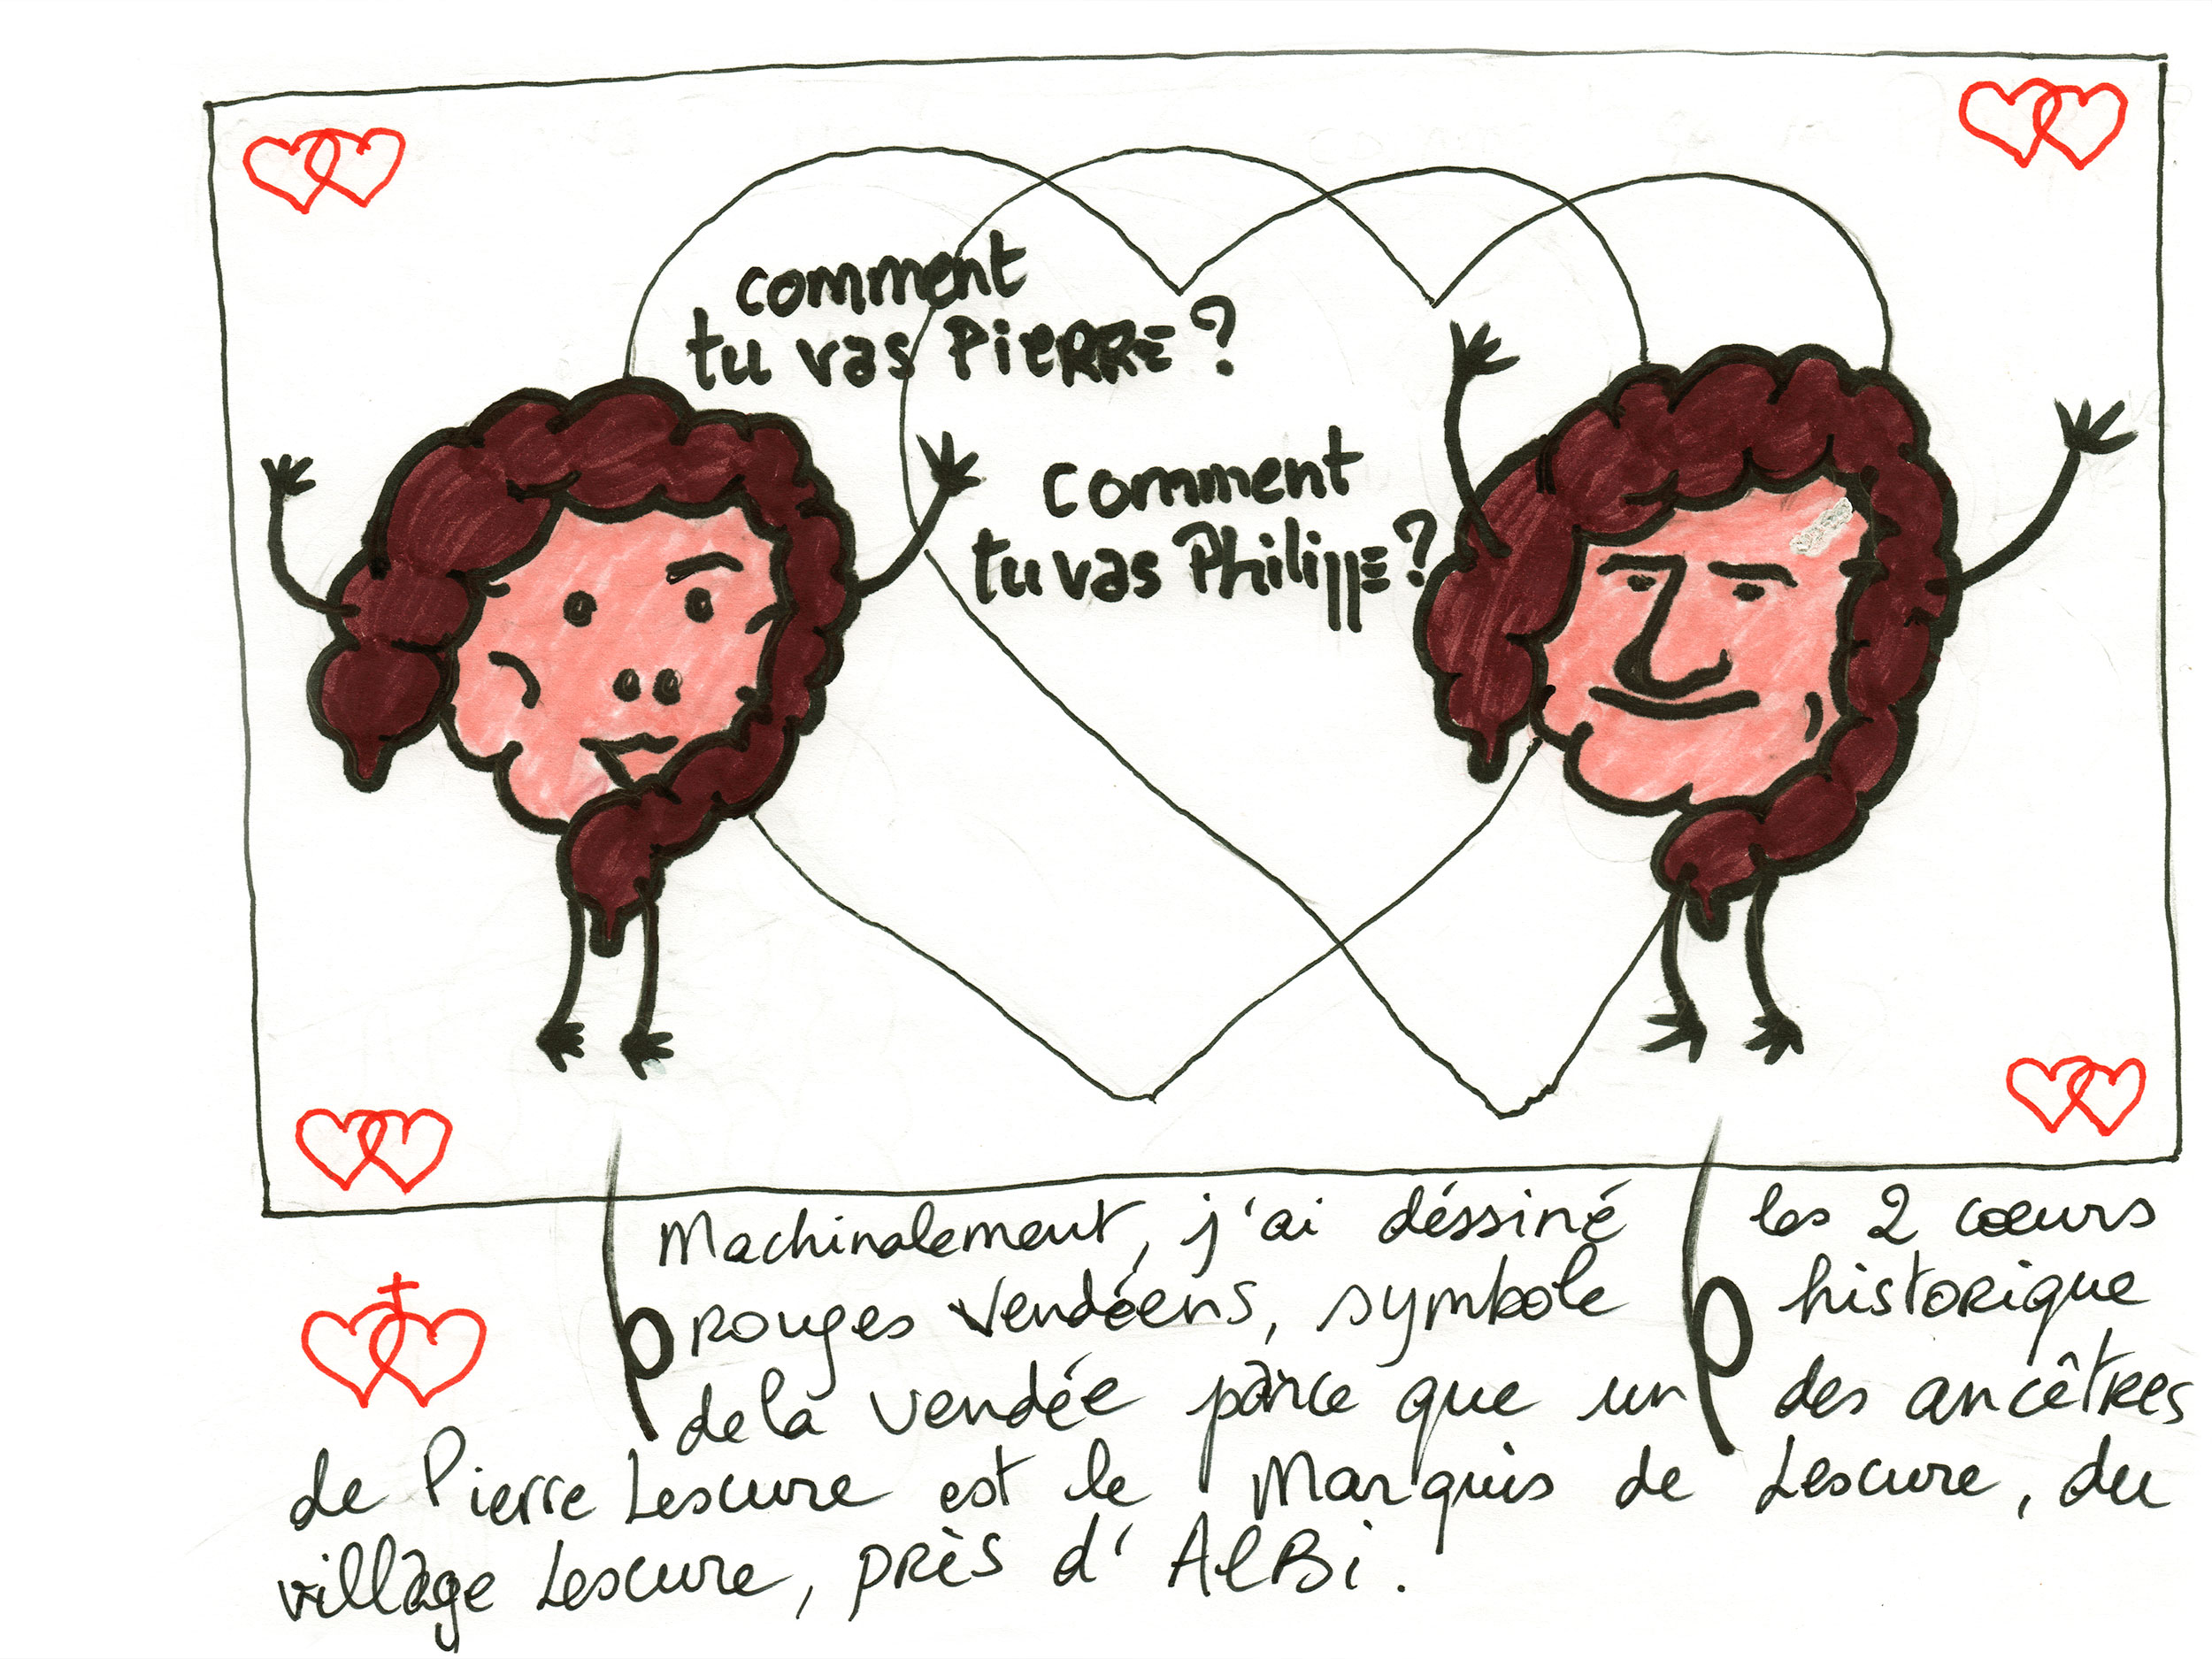 comment
tu vas PiERRE ?
comment
tu vas Philippe ?
Machinalement, j'ai déssiné les 2 cœurs
rouges vendéens, symbole historique
de la vendée parce que un des ancêtres
de Pierre Lescure est le Marquis de Lescure, du
village Lescure, près d'AlBi.